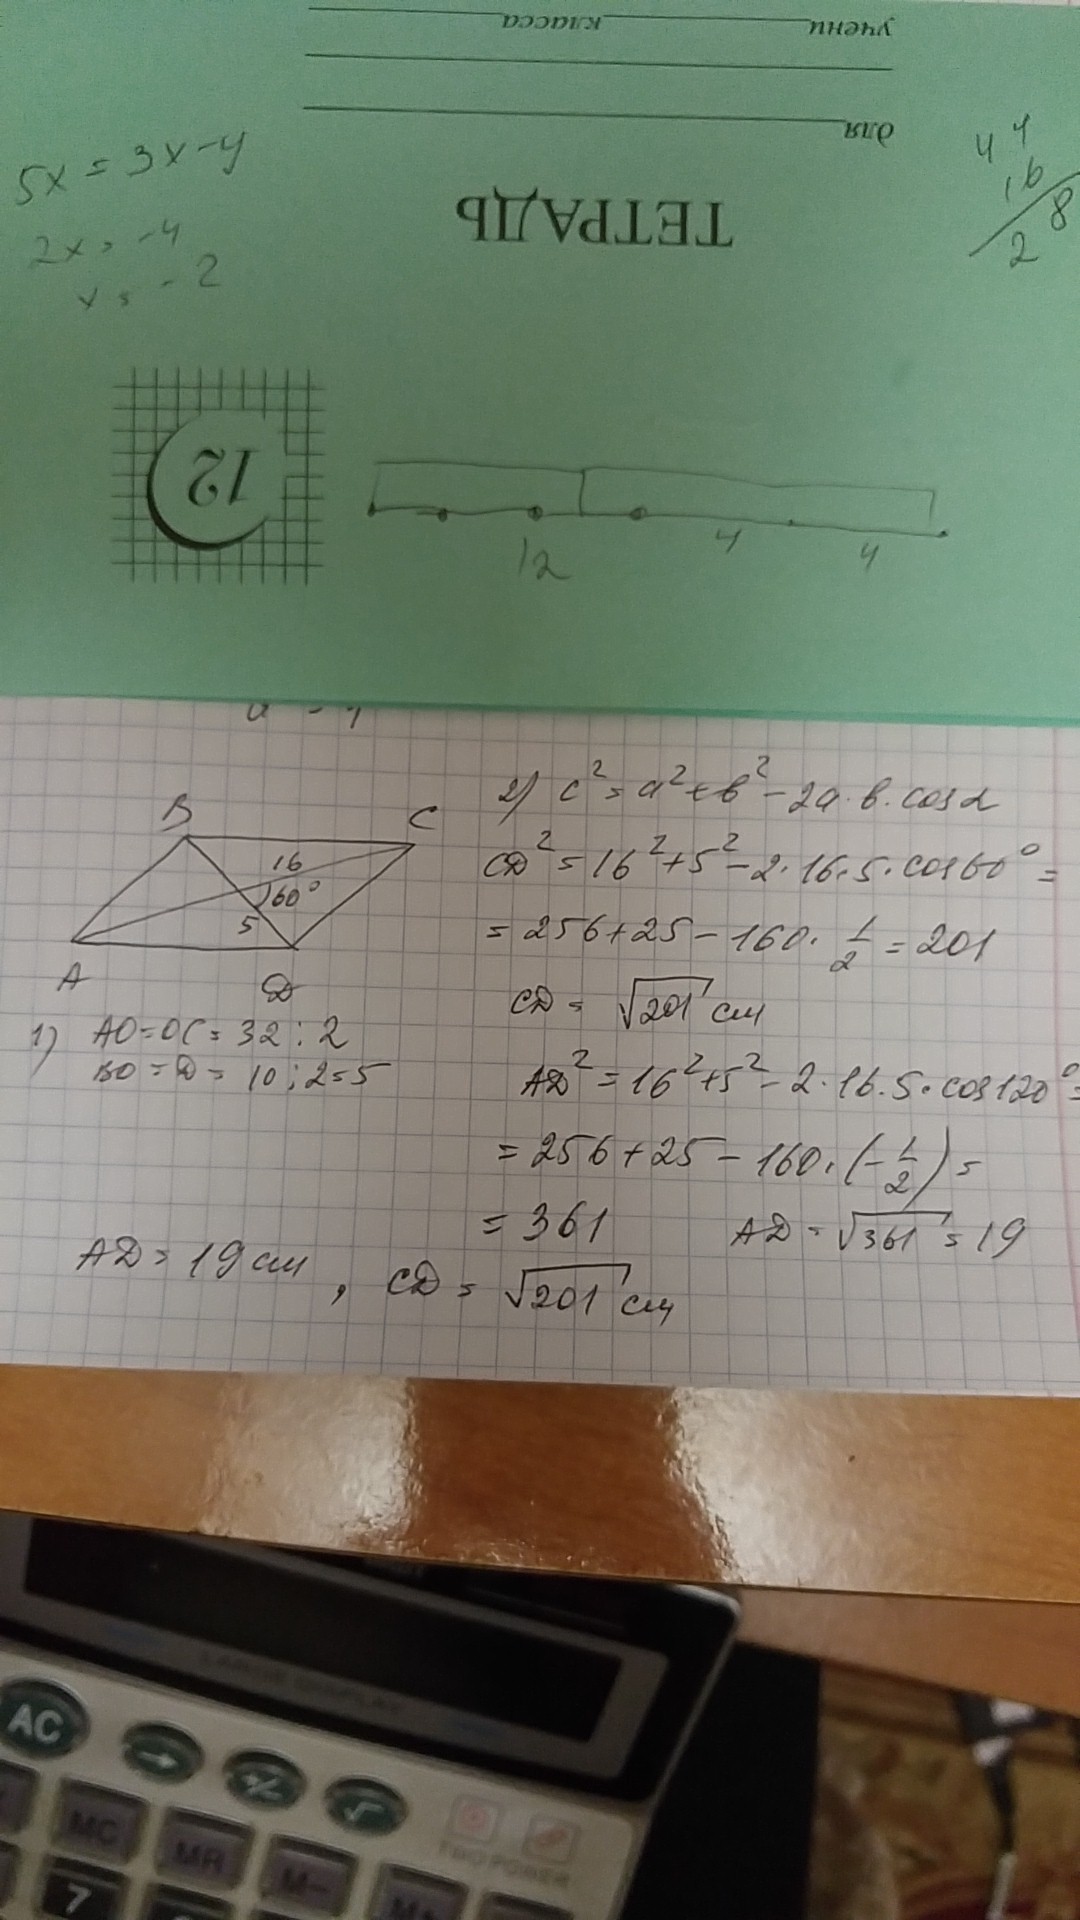 учени класса
для
ТЕТРАДЬ
12
5x = 3x - 4
2x = -4
x = -2
4 4
16
2 8
12 4 4
B C
16
60°
5
A D
1) AO = OC = 32 : 2
BO = D = 10 : 2 = 5
2) c² = a² + b² - 2a · b · cos α
CD² = 16² + 5² - 2 · 16 · 5 · cos 60° =
= 256 + 25 - 160 · 1/2 = 201
CD = √201 см
AD² = 16² + 5² - 2 · 16 · 5 · cos 120° =
= 256 + 25 - 160 · (-1/2) =
= 361 AD = √361 = 19
AD = 19 см, CD = √201 см
AC → +/- √
MC MR M-
TWO POWER
7